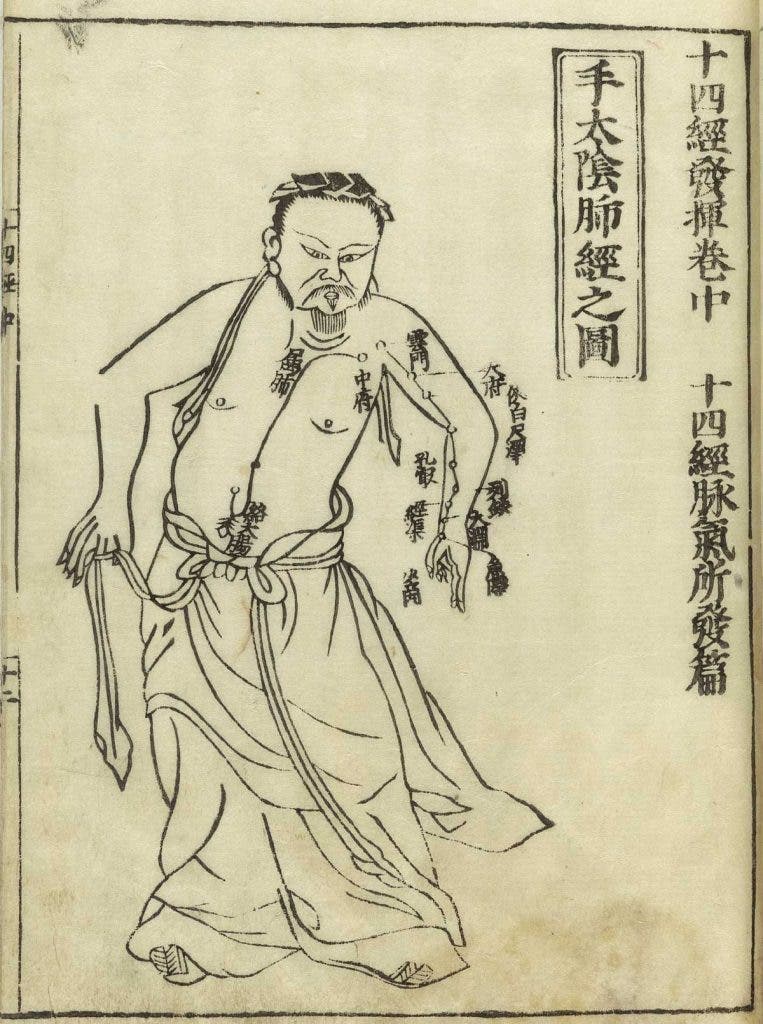 十四經發揮卷中 十四經脉氣所發篇
手太陰肺經之圖
雲門
中府
屬肺
天府
俠白
尺澤
孔最
列缺
經渠
太淵
魚際
少商
絡大腸
十四經中
十二